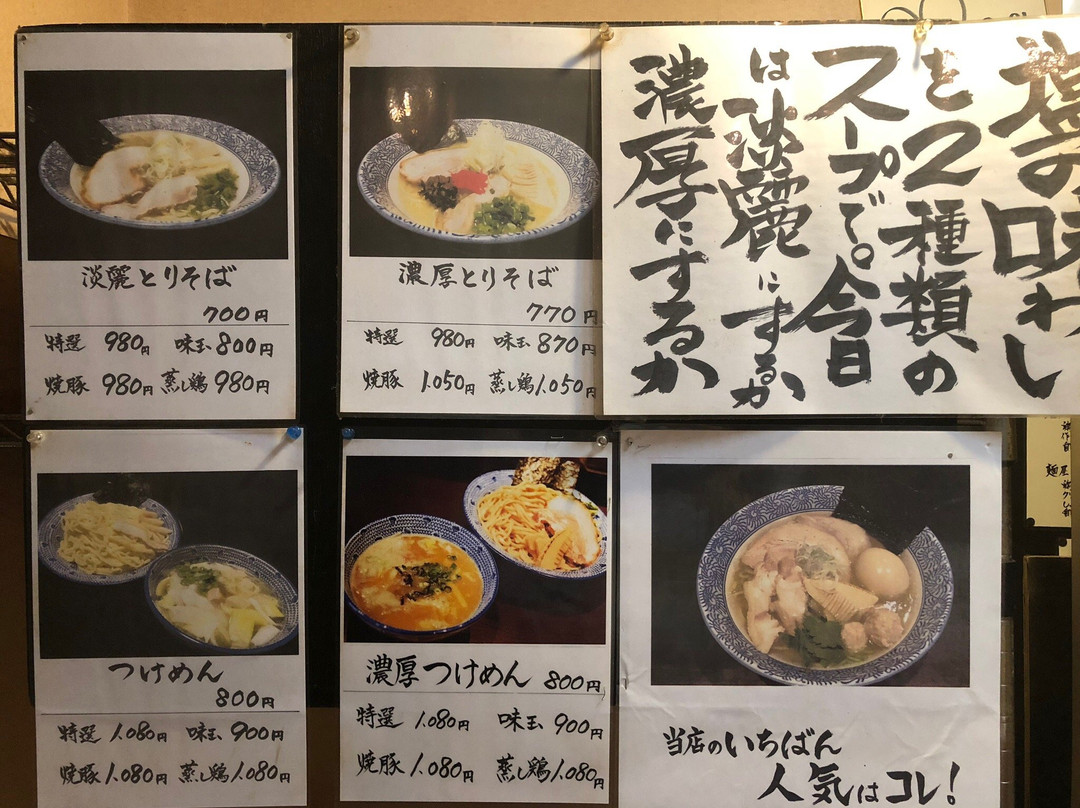 淡麗とりそば
700円
特選 980円 味玉 800円
焼豚 980円 蒸し鶏 980円
濃厚とりそば
770円
特選 980円 味玉 870円
焼豚 1.050円 蒸し鶏 1.050円
塩の味わし
を2種類の
スープで。今日
は淡麗にするか
濃厚にするか
つけめん
800円
特選 1.080円 味玉 900円
焼豚 1.080円 蒸し鶏 1.080円
濃厚つけめん 800円
特選 1.080円 味玉 900円
焼豚 1.080円 蒸し鶏 1.080円
当店のいちばん
人気はコレ!